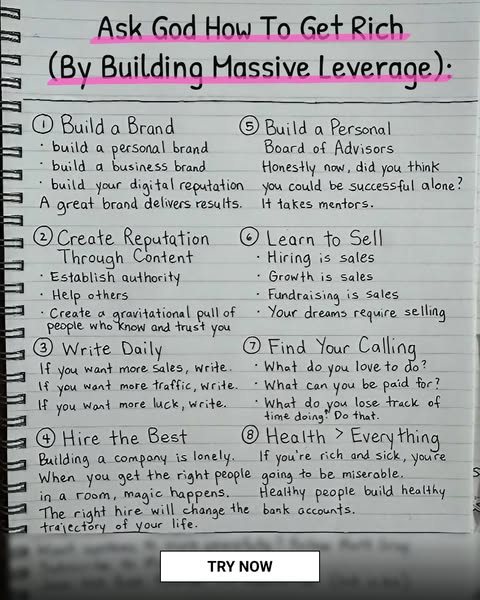 Ask God How To Get Rich
(By Building Massive Leverage):
① Build a Brand
· build a personal brand
· build a business brand
· build your digital reputation
A great brand delivers results.
② Create Reputation
Through Content
· Establish authority
· Help others
· Create a gravitational pull of
people who know and trust you
③ Write Daily
If you want more sales, write.
If you want more traffic, write.
If you want more luck, write.
④ Hire the Best
Building a company is lonely.
When you get the right people
in a room, magic happens.
The right hire will change the
trajectory of your life.
⑤ Build a Personal
Board of Advisors
Honestly now, did you think
you could be successful alone?
It takes mentors.
⑥ Learn to Sell
· Hiring is sales
· Growth is sales
· Fundraising is sales
· Your dreams require selling
⑦ Find Your Calling
· What do you love to do?
· What can you be paid for?
· What do you lose track of
time doing? Do that.
⑧ Health > Everything
If you're rich and sick, you're
going to be miserable.
Healthy people build healthy
bank accounts.
TRY NOW